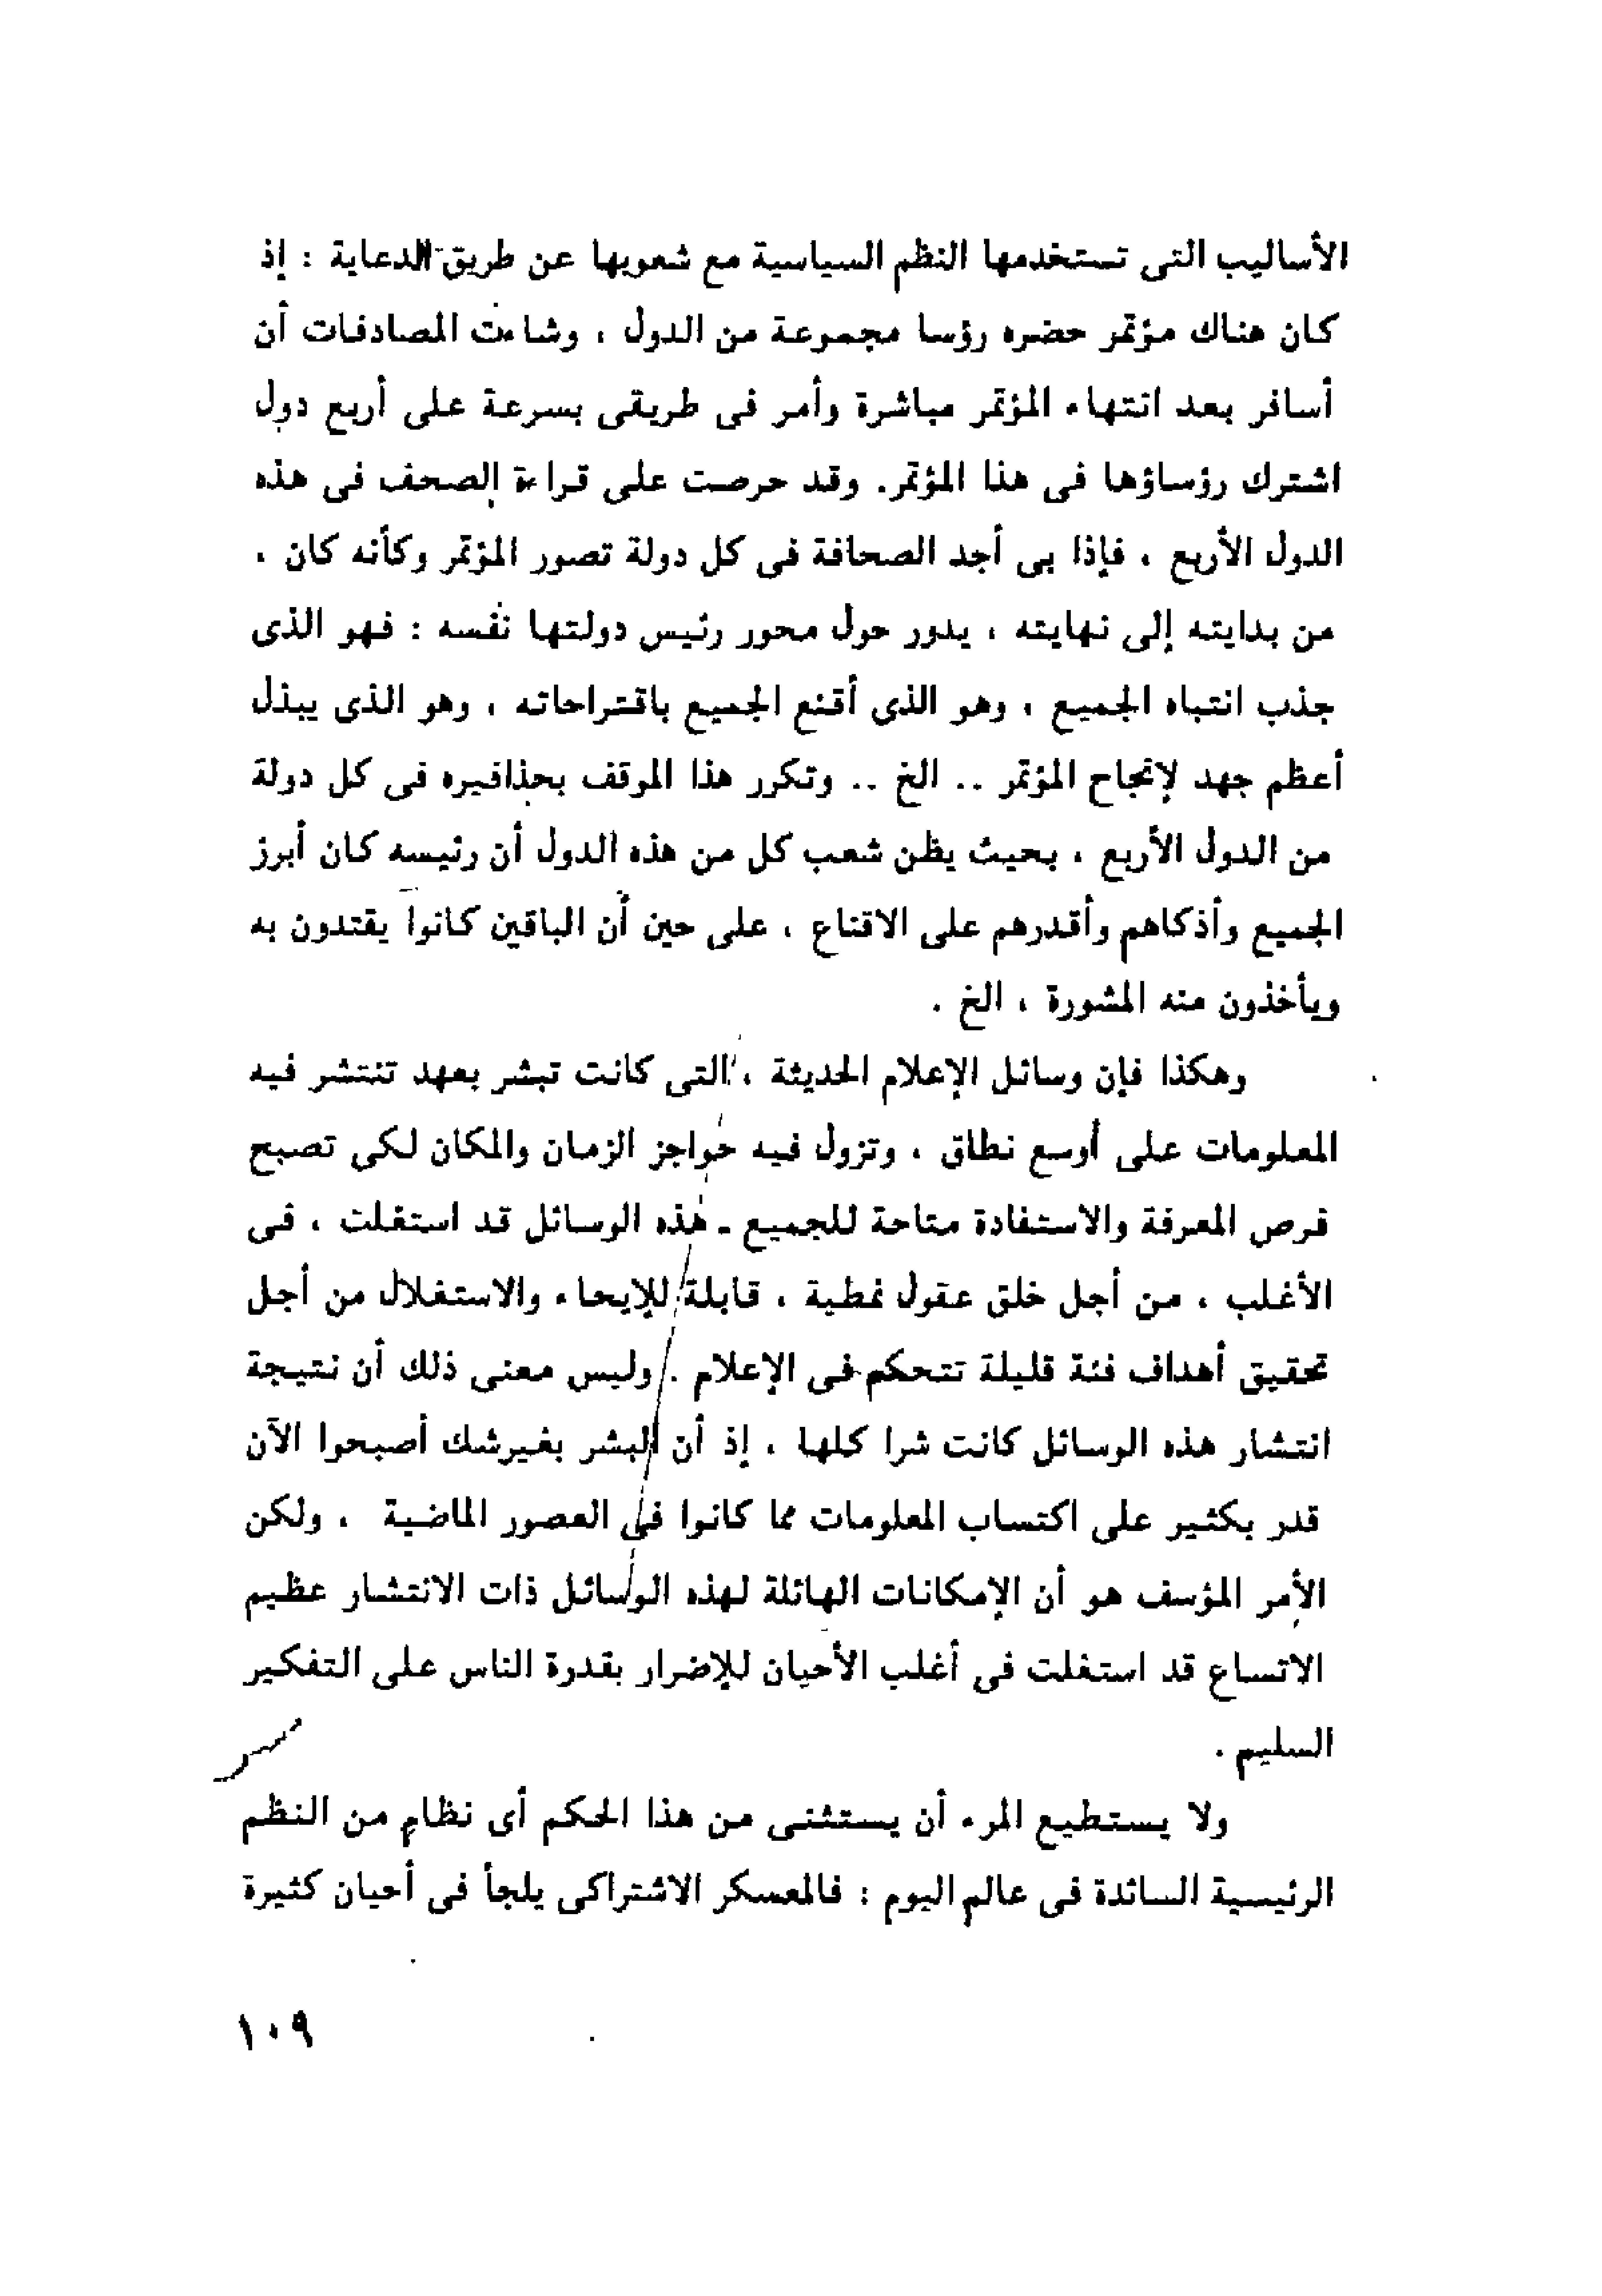 الأساليب التى تستخدمها النظم السياسية مع شعوبها عن طريق الدعاية : إذ
كان هناك مؤتمر حضره رؤسا مجموعة من الدول ، وشاءت المصادفات أن
أسافر بعد انتهاء المؤتمر مباشرة وأمر فى طريقى بسرعة على أربع دول
اشترك رؤساؤها فى هذا المؤتمر. وقد حرصت على قراءة الصحف فى هذه
الدول الأربع ، فإذا بى أجد الصحافة فى كل دولة تصور المؤتمر وكأنه كان ،
من بدايته إلى نهايته ، يدور حول محور رئيس دولتها نفسه : فهو الذى
جذب انتباه الجميع ، وهو الذى أقنع الجميع باقتراحاته ، وهو الذى يبذل
أعظم جهد لإنجاح المؤتمر .. الخ .. وتكرر هذا الموقف بحذافيره فى كل دولة
من الدول الأربع ، بحيث يظن شعب كل من هذه الدول أن رئيسه كان أبرز
الجميع وأذكاهم وأقدرهم على الاقناع ، على حين أن الباقين كانوا يقتدون به
ويأخذون منه المشورة ، الخ .
وهكذا فإن وسائل الإعلام الحديثة ، التى كانت تبشر بعهد تنتشر فيه
المعلومات على أوسع نطاق ، وتزول فيه حواجز الزمان والمكان لكى تصبح
فرص المعرفة والاستفادة متاحة للجميع - هذه الوسائل قد استغلت ، فى
الأغلب ، من أجل خلق عقول نمطية ، قابلة للإيحاء والاستغلال من أجل
تحقيق أهداف فئة قليلة تتحكم فى الإعلام . وليس معنى ذلك أن نتيجة
انتشار هذه الوسائل كانت شرا كلها ، إذ أن البشر بغيرشك أصبحوا الآن
قدر بكثير على اكتساب المعلومات مما كانوا فى العصور الماضية ، ولكن
الأمر المؤسف هو أن الإمكانات الهائلة لهذه الوسائل ذات الانتشار عظيم
الاتساع قد استغلت فى أغلب الأحيان للإضرار بقدرة الناس على التفكير
السليم .
ولا يستطيع المرء أن يستثنى من هذا الحكم أى نظام من النظم
الرئيسية السائدة فى عالم اليوم : فالمعسكر الاشتراكى يلجأ فى أحيان كثيرة
١٠٩